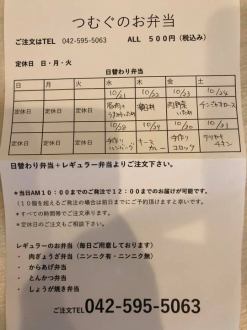 つむぐのお弁当
ご注文はTEL 042-595-5063 ALL 500円(税込み)
定休日 日・月・火
日替わり弁当
日 月 火 水 木 金 土
10/21 10/22 10/23 10/24
定休日 定休日 定休日
10/28 10/29 10/30 10/31
定休日 定休日 定休日 手作りハンバーグ チーズカレー 手作りコロッケ テリヤキチキン
日替わり弁当+レギュラー弁当よりご注文下さい。
*当日AM10:00までのご発注で12:00までのお届けが可能です。
(10個を超えるご発注の場合は前日までにご予約頂けますと幸いです。
*すべての時間帯でご注文承ります。
*定休日のご注文もご相談下さい。
レギュラーのお弁当(毎日ご用意しております)
・ 肉ぎょうざ弁当(ニンニク有・ニンニク無)
・ からあげ弁当
・ とんかつ弁当
・ しょうが焼き弁当
ご注文TEL042-595-5063